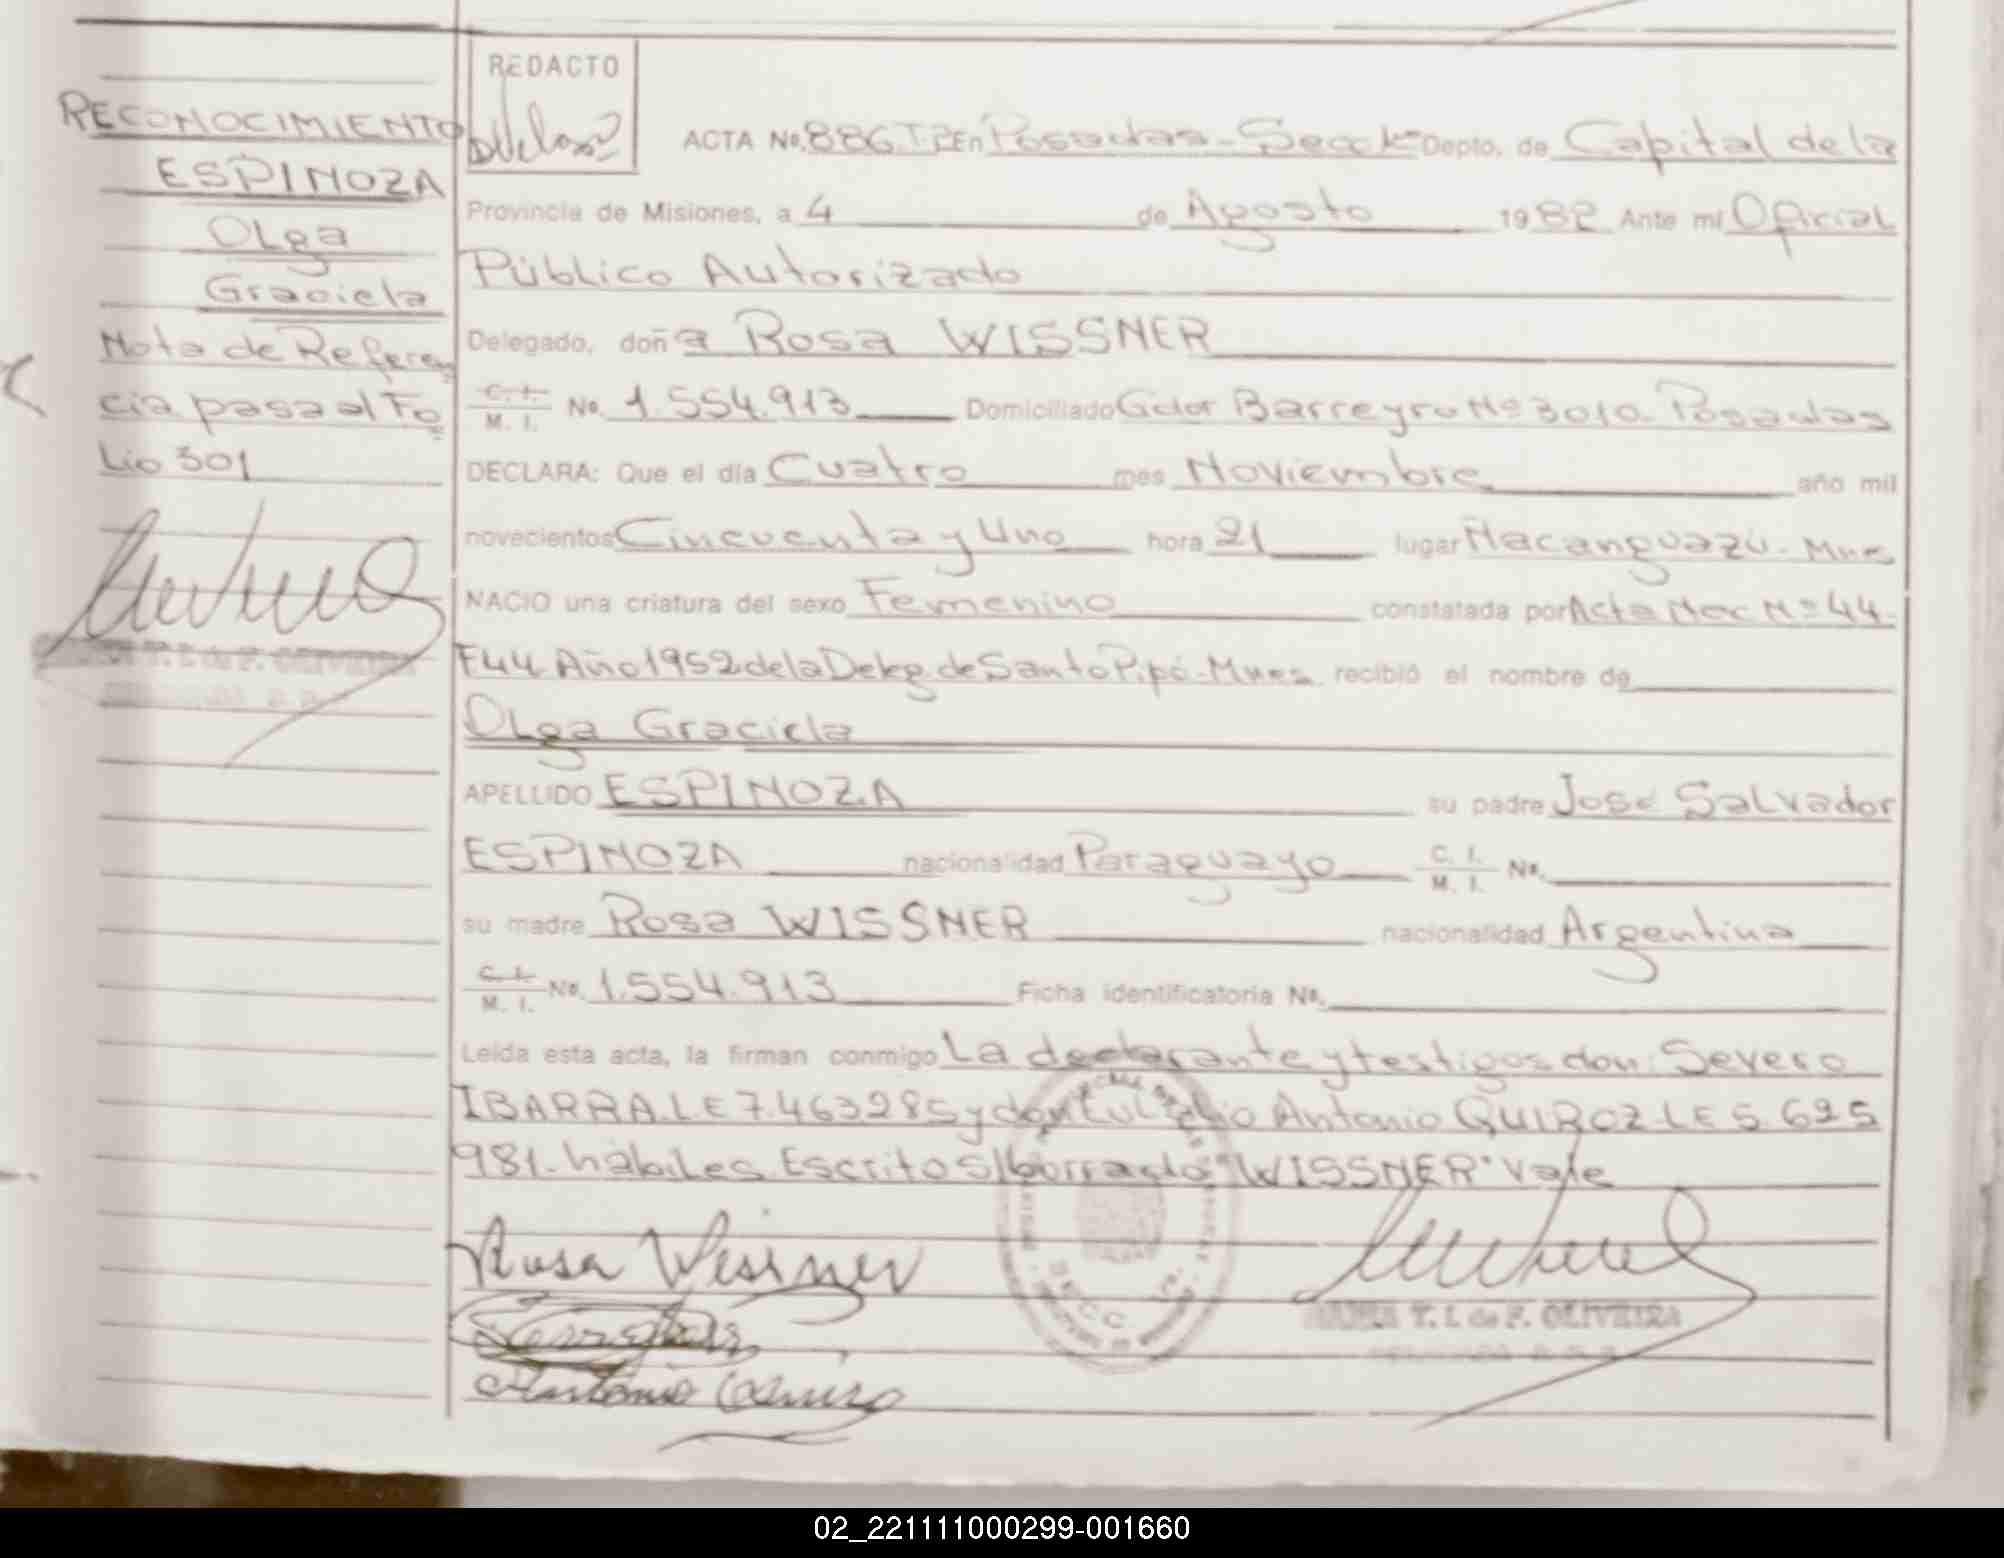 RECONOCIMIENTO
ESPINOZA
Olga
Graciela
Nota de Referen
cia pasa al Fo
lio 301
REDACTO
ACTA No. 886.T.2 En Posadas - Secc 1ª Depto. de Capital de la
Provincia de Misiones, a 4 de Agosto 1982 Ante mí Oficial
Público Autorizado
Delegado, doña Rosa WISSNER
C. I. M. I. No. 1.554.913 Domiciliado Gdor Barreyro Nº 3010. Posadas
DECLARA: Que el día Cuatro mes Noviembre año mil
novecientos Cincuenta y Uno hora 21 lugar Ñacanguazú. Mnes
NACIO una criatura del sexo Femenino constatada por Acta Nac Nº 44.
F44 Año 1952 de la Deleg. de Santo Pipó - Mnes recibió el nombre de
Olga Graciela
APELLIDO ESPINOZA su padre José Salvador
ESPINOZA nacionalidad Paraguayo C. I. M. I. No.
su madre Rosa WISSNER nacionalidad Argentina
C. I. M. I. No. 1.554.913 Ficha identificatoria No.
Leída esta acta, la firman conmigo La declarante y testigos don: Severo
IBARRA. LE 7.463.285 y don Antonio QUIROZ LE 5.625
981. hábiles. Escrito S/borrado "WISSNER" Vale
Rosa Wissner
Antonio
T. I. de F. OLIVEIRA
SECC
T. I. de F. OLIVEIRA
02_221111000299-001660